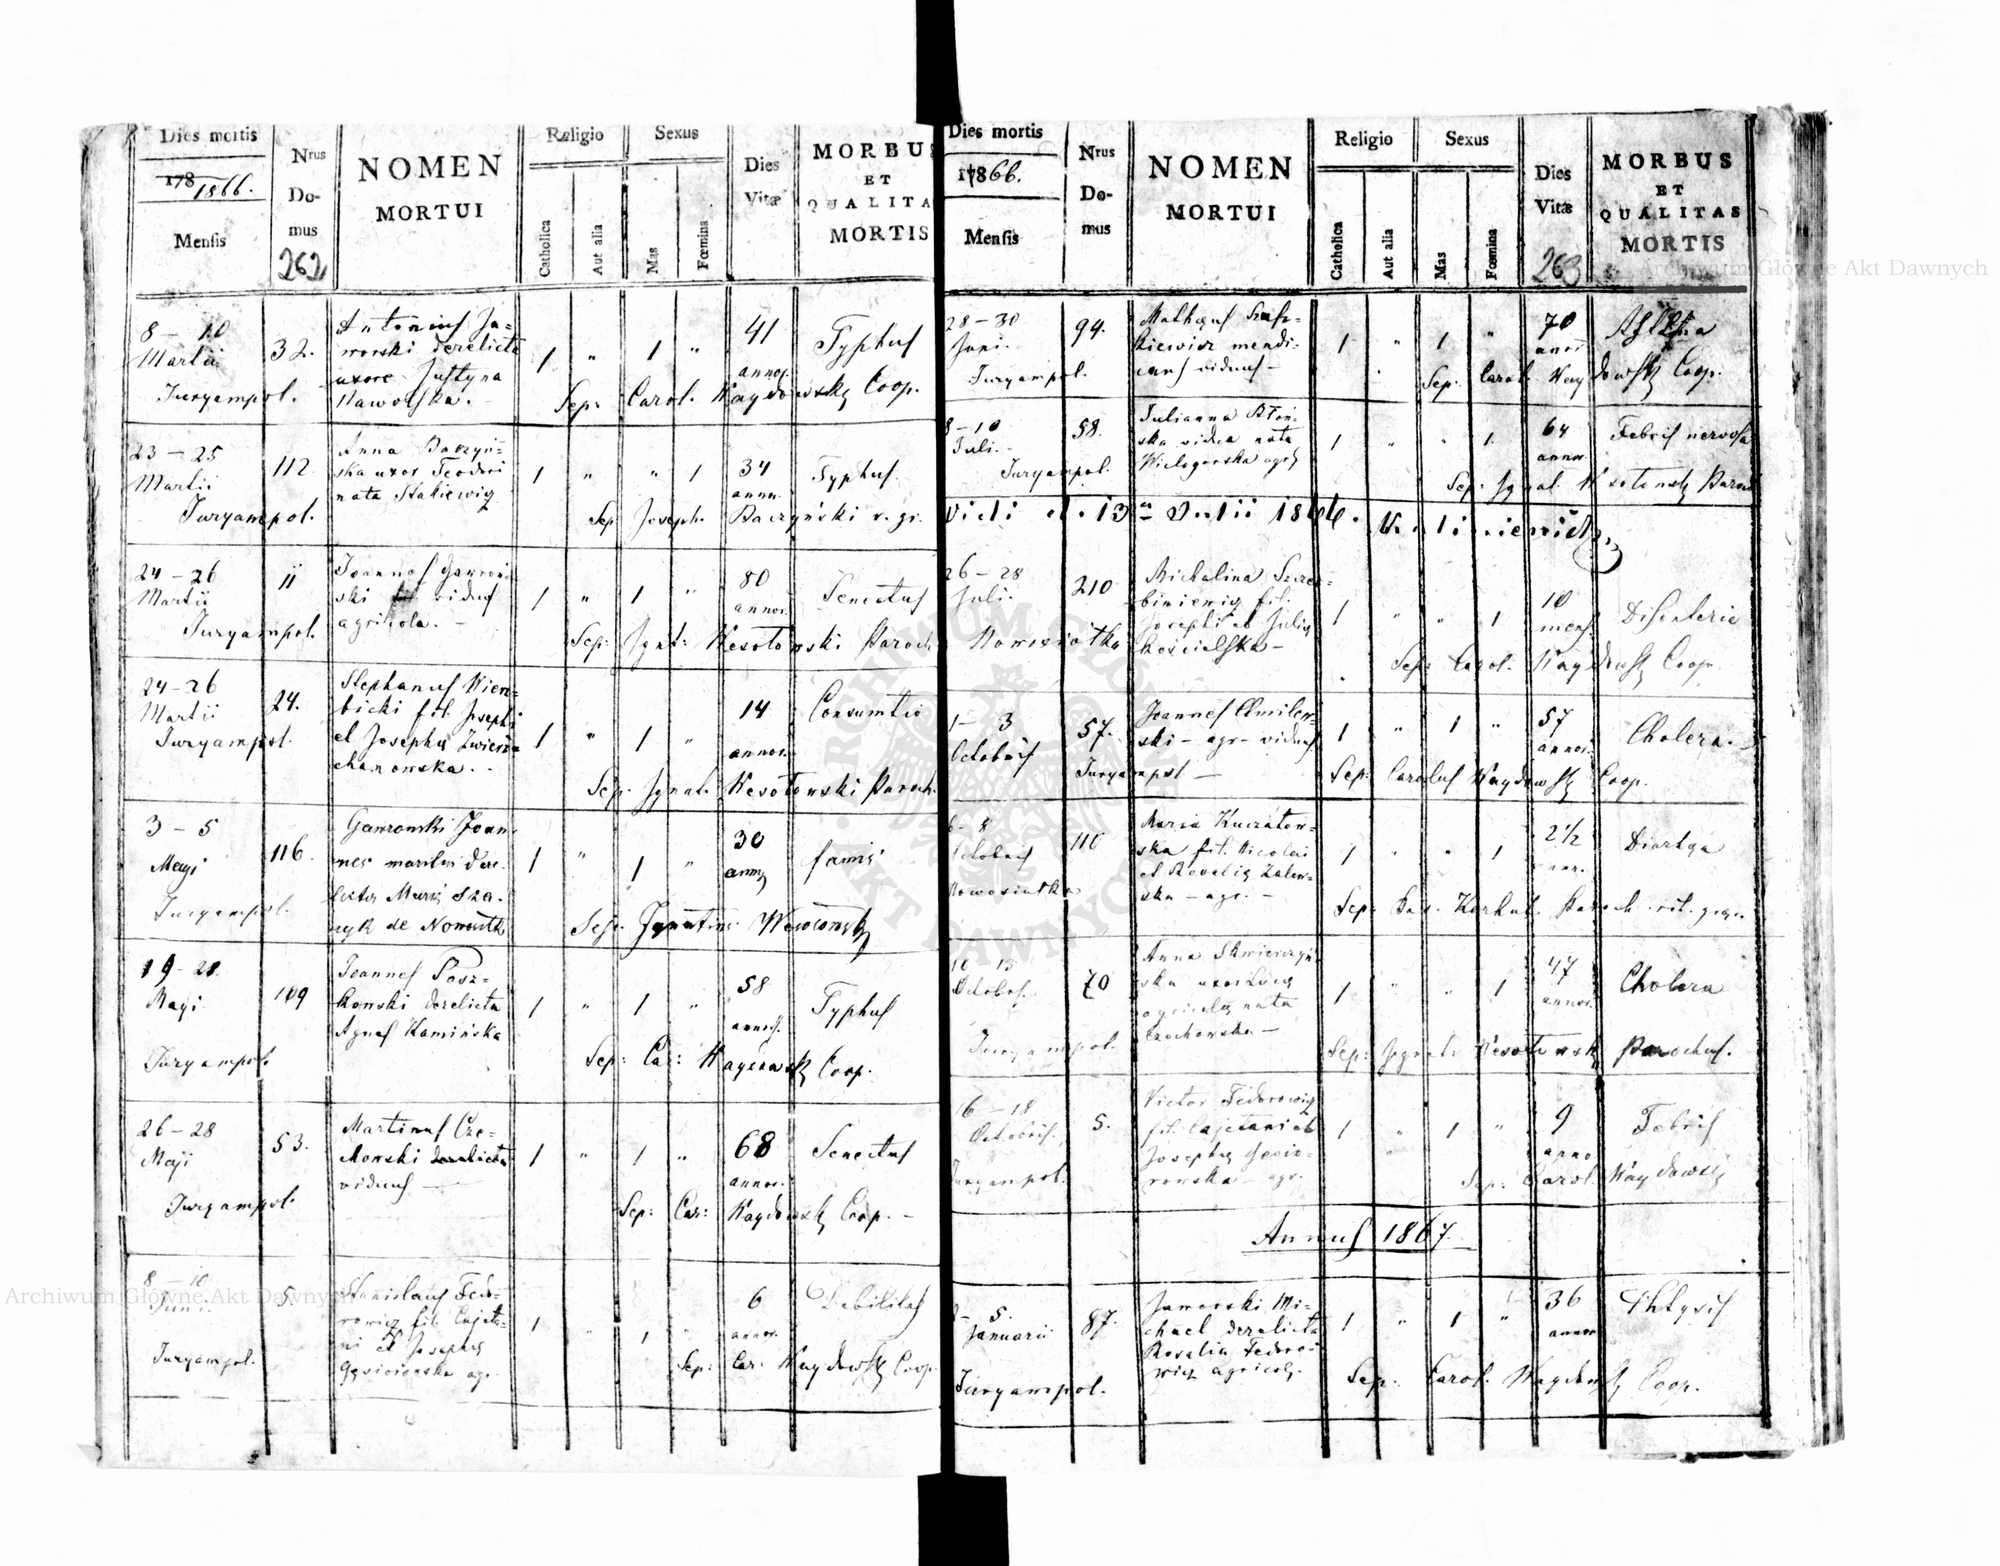 Dies mortis
178
1866.
Mensis
Nrus
Do-
mus
262
NOMEN
MORTUI
Religio
Catholica
Aut alia
Sexus
Mas
Fœmina
Dies
Vitæ
MORBUS
ET
QUALITA
MORTIS
8 – 10
Martii
Juryampol.
32.
Antonius Ja=
worski derelicta
uxore Justyna
Nawolska.
1 " 1 "
41
annor.
Typhus
Sep: Carol. Waydowski Coop.
23 – 25
Martii
Juryampol.
112
Anna Baczyń=
ska uxor Teodori
nata Stakiewicz
1 " " 1
34
annor.
Typhus.
Sep. Joseph. Baczyński r. gr.
24 – 26
Martii
Juryampol.
11
Joannes Gawroń
ski viduus
agricola. –
1 " 1 "
80
annor.
Senectus
Sep: Ignat: Wesołowski Paroch
24 – 26
Martii
Juryampol.
24.
Stephanus Wierz=
bicki fil. Josephi
et Josepha Zwierz=
chanowska. –
1 " 1 "
14
annor.
Consumtio
Sep. Ignat. Wesołowski Paroch.
3 – 5
Maji
Juryampol.
116.
Gawronski Joan
nes maritus dere-
1 " 1 "
30
famis
Sep. Ignatius
19 – 21.
Maji
Juryampol.
109
Joannes Posz=
kowski derelicta
Agnes Kamińska
1 " 1 "
58
annor.
Typhus
Sep: Car: Waydowski Coop.
26 – 28
Maji
Juryampol.
53.
Martinus Cze=
kowski derelicta
viduus –
1 " 1 "
68
annor.
Senectus
Sep: Car: Waydowski Coop. –
8 – 10
Juni
Juryampol.
5.
Stanislaus Fedo=
rowicz fil. Cajeta=
ni et Josepha
Gąsiorowska agr.
1 " 1 "
6
annor.
Debilitas
Sep: Car: Waydowski Coop.
Dies mortis
1866.
Mensis
Nrus
Do-
mus
NOMEN
MORTUI
Religio
Catholica
Aut alia
Sexus
Mas
Fœmina
Dies
Vitæ
263
MORBUS
ET
QUALITAS
MORTIS
28 – 30
Juni.
Juryampol.
94.
kiewicz mendi=
cans viduus –
1 " 1 "
70
annor.
Sep. Carol. Waydowski Coop.
8 – 10
Juli.
Juryampol.
58.
Julianna Błoń=
ska vidua nata
Wielogorska agr.
1 " " 1
64
annor.
Febris nervosa
Sep: Ignat. Wesołowski Paroch
Vidi d. 13 Julii 1866.
26 – 28
Juli.
Nowosiołka
210
Michalina Szczer=
biniewicz fil.
Josephi et Julia
Kościelska –
1 " " 1
10
mens.
Disenteria
Sep: Carol. Waydowski Coop.
1 – 3
Octobris
57.
Juryampol –
Joannes Chmilew=
ski – agr – viduus
1 " 1 "
57
annor.
Cholera.
Sep: Carolus Waydowski Coop.
6 – 8
Octobris
Nowosiołka
110
Maria Kuczatow=
ska fil. Nicolai
et Rosalia Zalew=
ska – agr. –
1 " " 1
2 1/2
annr.
Diartya
Sep: Bas. Paroch. rit. græc.
Octobr.
Juryampol.
70
Anna Skwierczyń
ska
agricola nata
Czachowska –
1 " " 1
47
annor.
Cholera
Sep: Ignat: Wesołowski Parochus.
16 – 18
Octobris.
Juryampol.
5.
Victor Fedorowicz
fil. Cajetani et
Josepha Gąsio=
rowska – agr.
1 " 1 "
9
anno
Febris
Sep: Carol. Waydowski
Annus 1867
5.
Januarii
Juryampol.
87.
Jaworski Mi=
chael derelicta
Rosalia Fedoro=
wicz agricola.
1 " 1 "
36
annor
Phtysis
Sep. Carol. Waydowski Coop.
Archiwum Główne Akt Dawnych
Archiwum Główne Akt Dawnych
ARCHIWUM GŁÓWNE AKT DAWNYCH